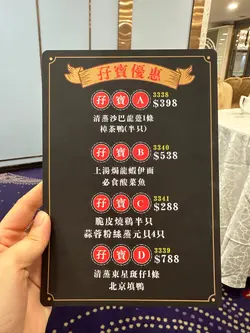 孖寶優惠
孖寶A 3338 $398
清蒸沙巴龍躉1條
樟茶鴨(半只)
孖寶B 3340 $538
上湯焗龍蝦伊面
必食酸菜魚
孖寶C 3341 $288
脆皮燒鵝半只
蒜蓉粉絲蒸元貝4只
孖寶D 3339 $788
清蒸東星斑仔1條
北京填鴨